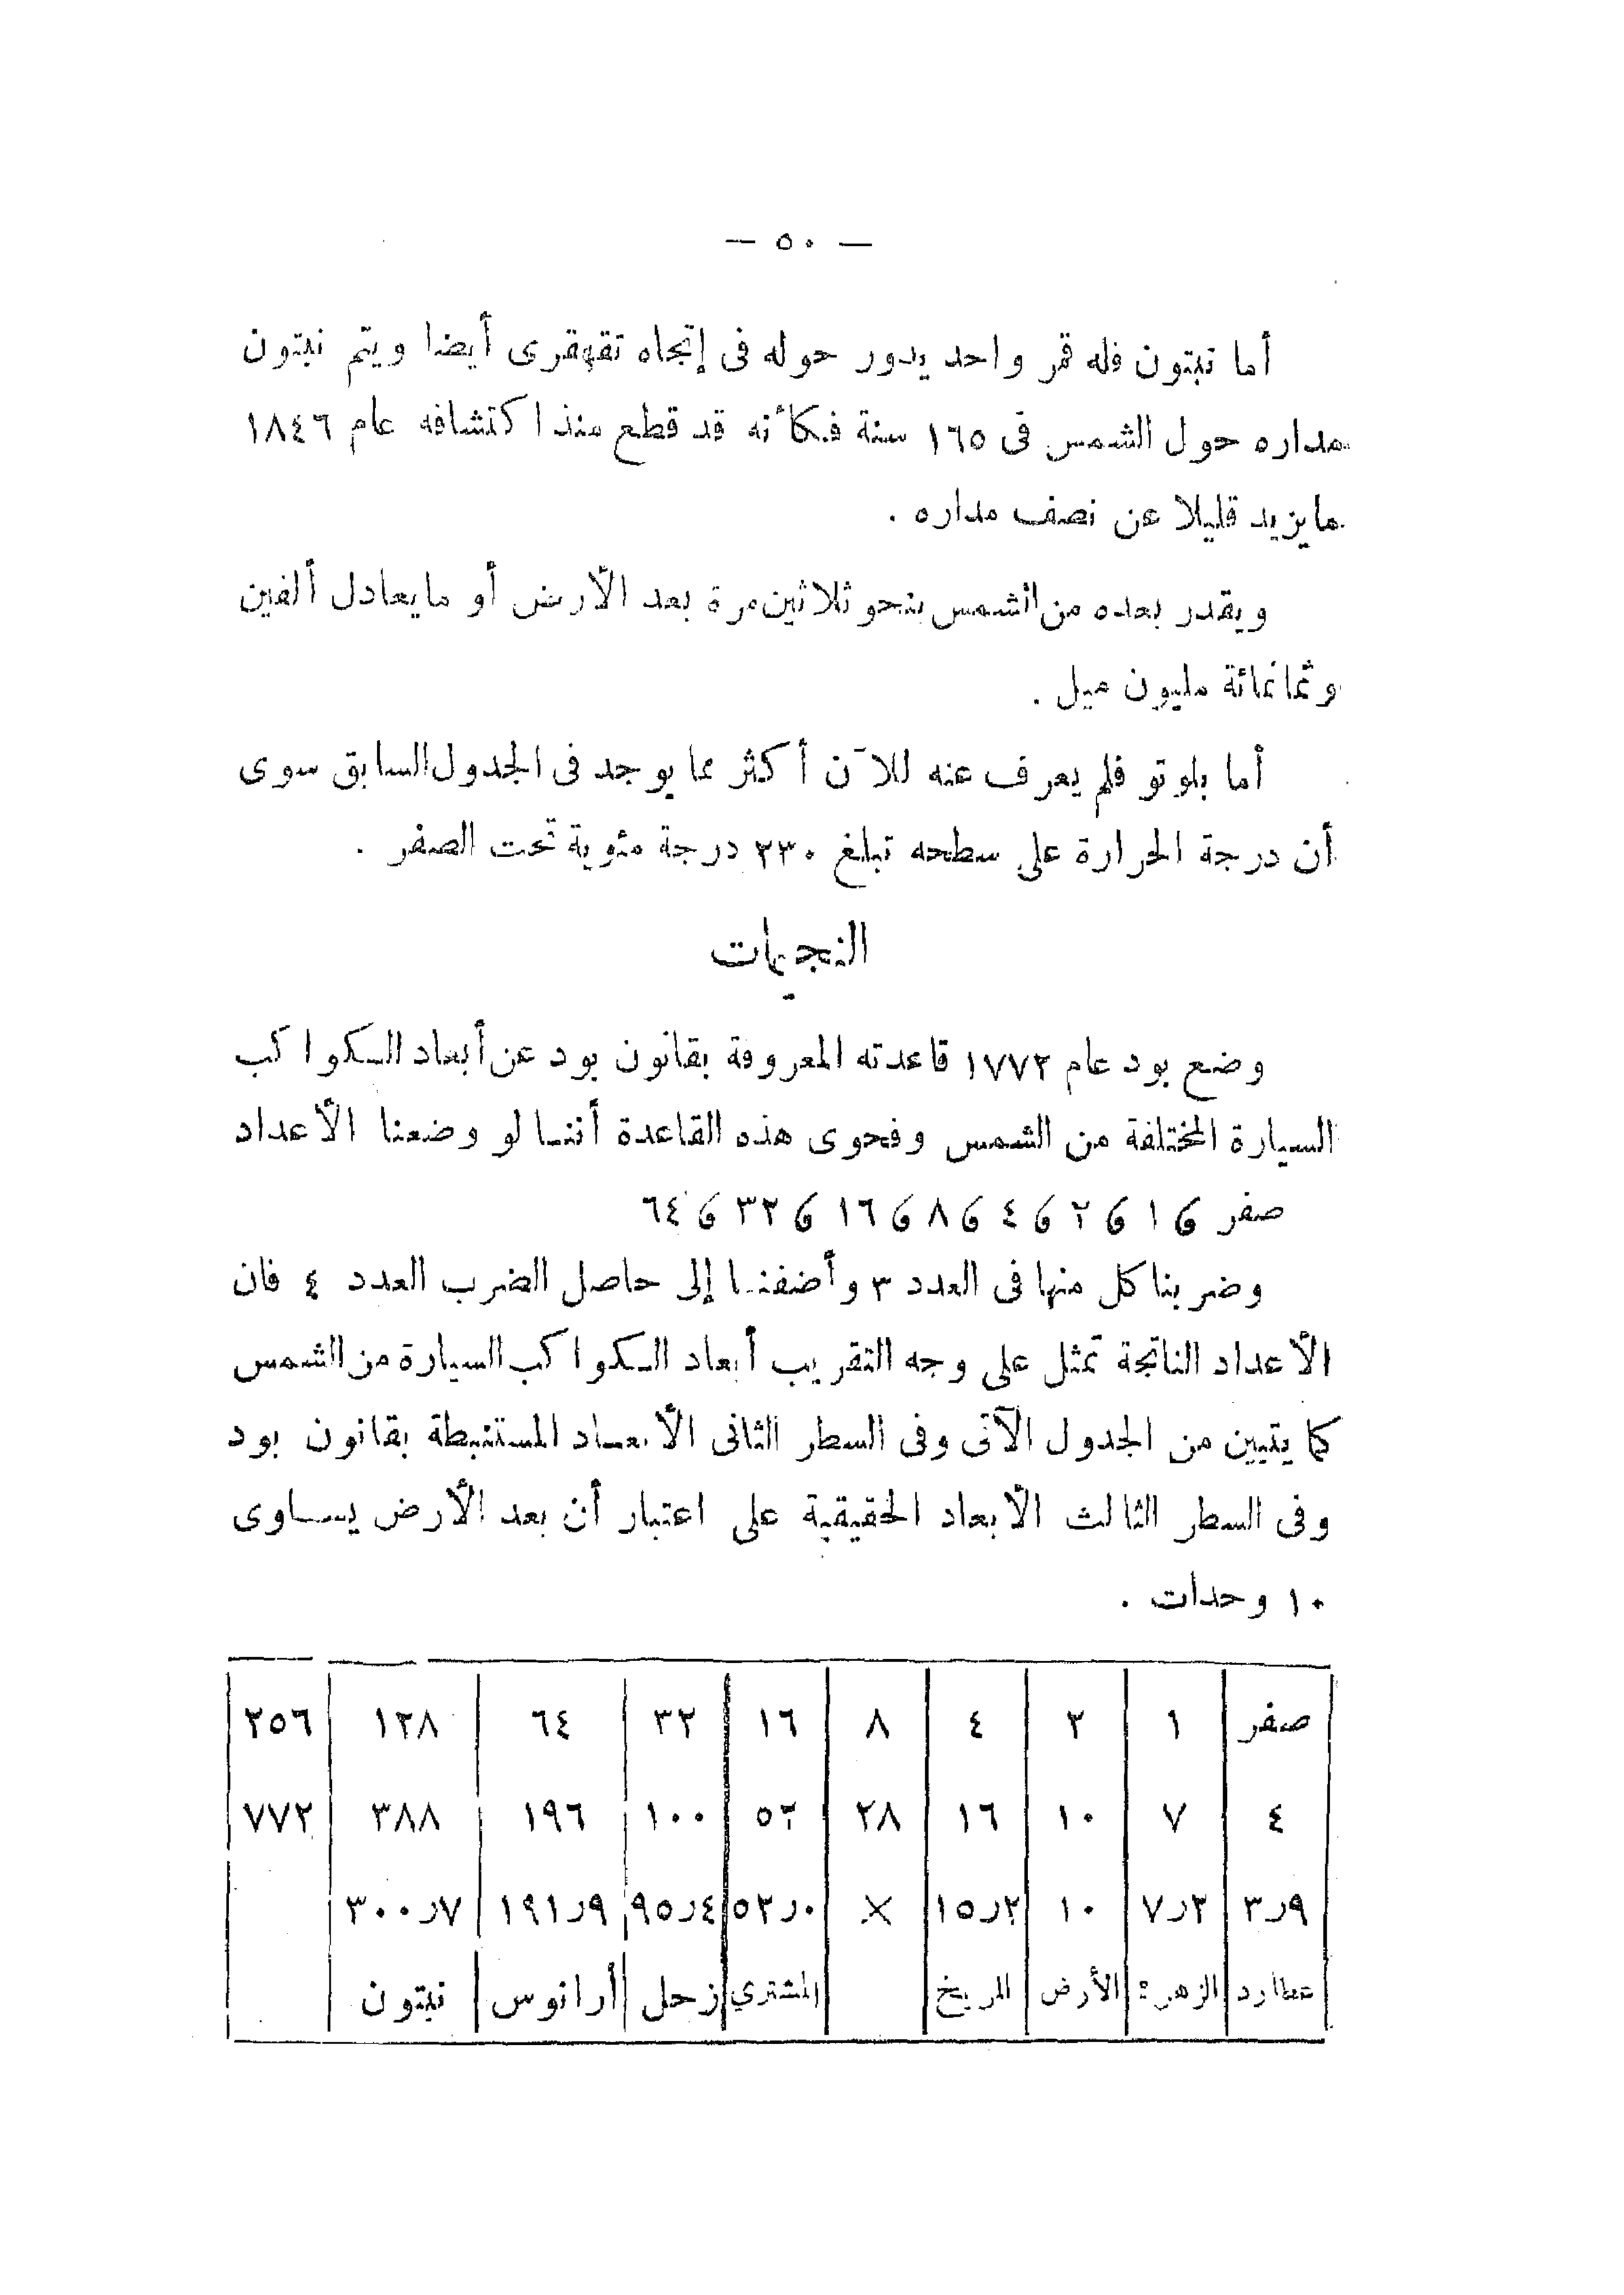 — ٥٠ —
أما نبتون فله قمر واحد يدور حوله فى إتجاه تقهقرى أيضا ويتم نبتون
مداره حول الشمس فى ١٦٥ سنة فكأنه قد قطع منذ اكتشافه عام ١٨٤٦
مايزيد قليلا عن نصف مداره .
ويقدر بعده من الشمس بنحو ثلاثين مرة بعد الأرض أو مايعادل ألفين
وثمانمائة مليون ميل .
أما بلوتو فلم يعرف عنه للآن أكثر مما يوجد فى الجدول السابق سوى
أن درجة الحرارة على سطحه تبلغ ٢٣٠ درجة مئوية تحت الصفر .
النجيمات
وضع بود عام ١٧٧٢ قاعدته المعروفة بقانون بود عن أبعاد الكواكب
السيارة المختلفة من الشمس وفحوى هذه القاعدة أننا لو وضعنا الأعداد
صفر و ١ و ٢ و ٤ و ٨ و ١٦ و ٣٢ و ٦٤
وضربنا كل منها فى العدد ٣ وأضفنا إلى حاصل الضرب العدد ٤ فان
الأعداد الناتجة تمثل على وجه التقريب أبعاد الكواكب السيارة من الشمس
كما يتبين من الجدول الآتى وفى السطر الثانى الأبعاد المستنبطة بقانون بود
وفى السطر الثالث الأبعاد الحقيقية على اعتبار أن بعد الأرض يساوى
١٠ وحدات .
صفر ١ ٢ ٤ ٨ ١٦ ٣٢ ٦٤ ١٢٨ ٢٥٦
٤ ٧ ١٠ ١٦ ٢٨ ٥٢ ١٠٠ ١٩٦ ٣٨٨ ٧٧٢
٣ر٩ ٧ر٢ ١٠ ١٥ر٢ × ٥٢ر٠ ٩٥ر٤ ١٩١ر٩ ٣٠٠ر٧
عطارد الزهرة الأرض المريخ المشترى زحل أرانوس نبتون